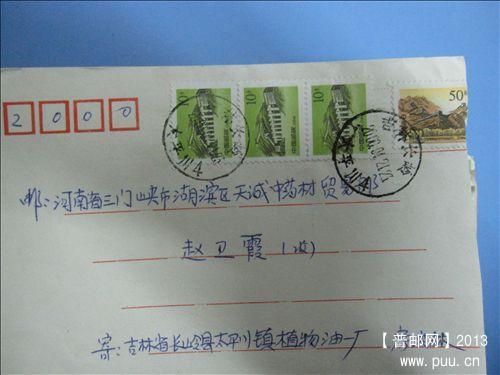 10分 10分 10分 50分
2 0 0 0
邮:河南省三门峡市湖滨区天诚中药材贸易部
赵卫霞(收)
寄:吉林省长岭县太平川镇植物油一厂
【普邮网】2013
www.puu.cn